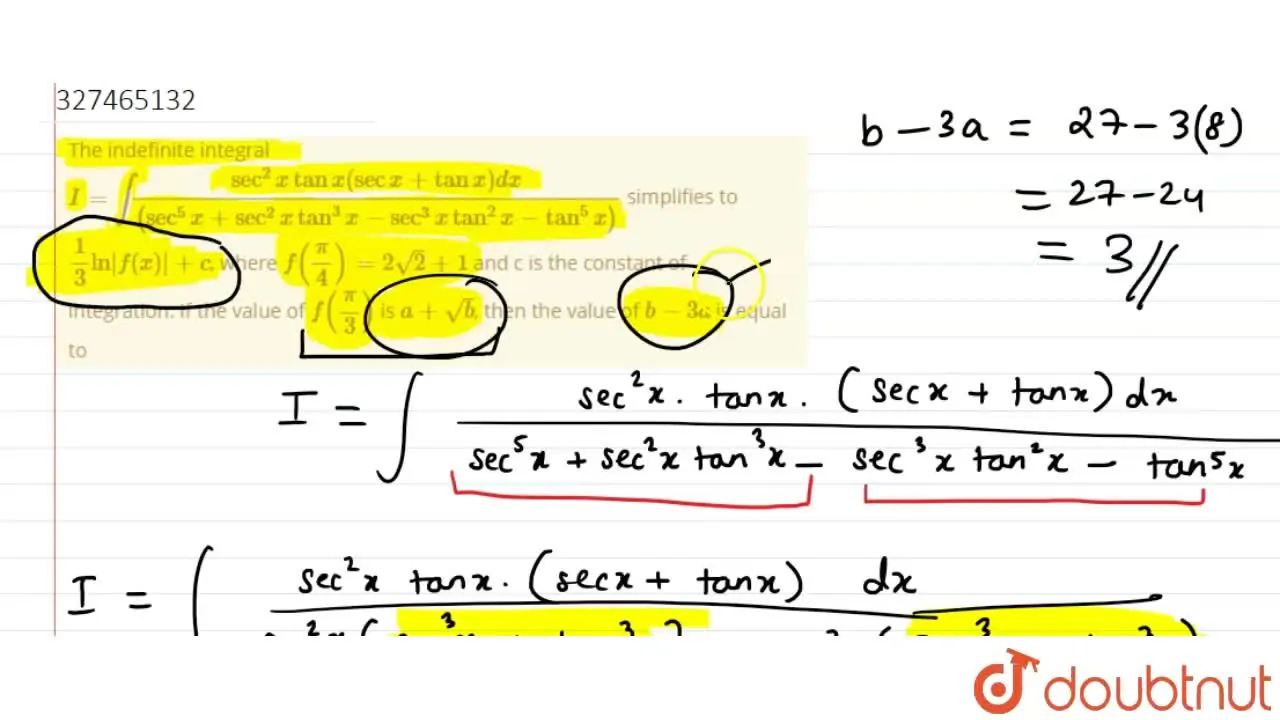 327465132
The indefinite integral
I = ∫ sec² x tan x(sec x + tan x)dx / (sec⁵ x + sec² x tan³ x − sec³ x tan² x − tan⁵ x) simplifies to
1/3 ln|f(x)| + c, where f(π/4) = 2√2 + 1 and c is the constant of
integration. If the value of f(π/3) is a + √b, then the value of b − 3a is equal
to
b − 3a = 27 − 3(8)
= 27 − 24
= 3 //
I = ∫ sec²x . tanx . (secx + tanx) dx / sec⁵x + sec²x tan³x − sec³x tan²x − tan⁵x
I = ∫ sec²x tanx . (secx + tanx) dx
doubtnut